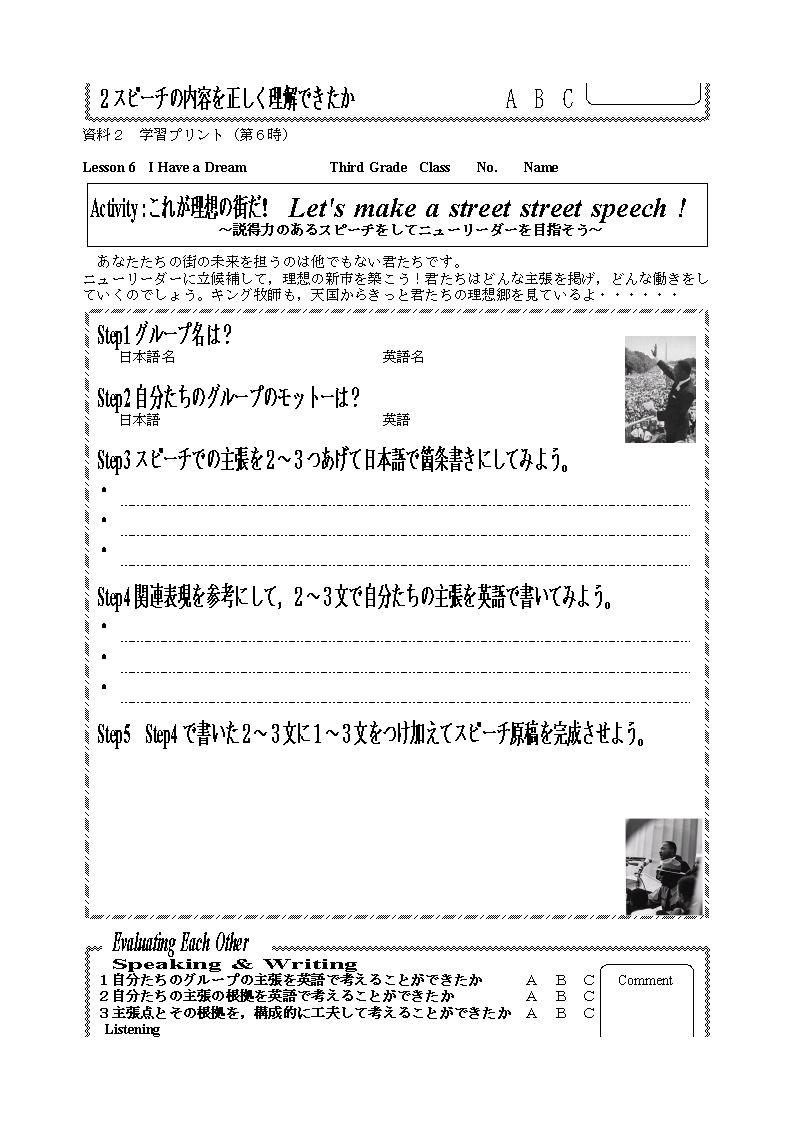 ２スピーチの内容を正しく理解できたか　A　B　C
資料２　学習プリント（第６時）
Lesson 6　I Have a Dream　Third Grade　Class　No.　Name
Activity : これが理想の街だ!　Let's make a street street speech !
～説得力のあるスピーチをしてニューリーダーを目指そう～
あなたたちの街の未来を担うのは他でもない君たちです。
ニューリーダーに立候補して，理想の新市を築こう！君たちはどんな主張を掲げ，どんな働きをし
ていくのでしょう。キング牧師も，天国からきっと君たちの理想郷を見ているよ・・・・・・
Step1 グループ名は？
日本語名　英語名
Step2 自分たちのグループのモットーは？
日本語　英語
Step3 スピーチでの主張を２～３つあげて日本語で箇条書きにしてみよう。
・
・
・
Step4 関連表現を参考にして，２～３文で自分たちの主張を英語で書いてみよう。
・
・
・
Step5　Step4 で書いた２～３文に１～３文をつけ加えてスピーチ原稿を完成させよう。
Evaluating Each Other
Speaking & Writing
１自分たちのグループの主張を英語で考えることができたか　A　B　C　Comment
２自分たちの主張の根拠を英語で考えることができたか　A　B　C
３主張点とその根拠を，構成的に工夫して考えることができたか　A　B　C
Listening